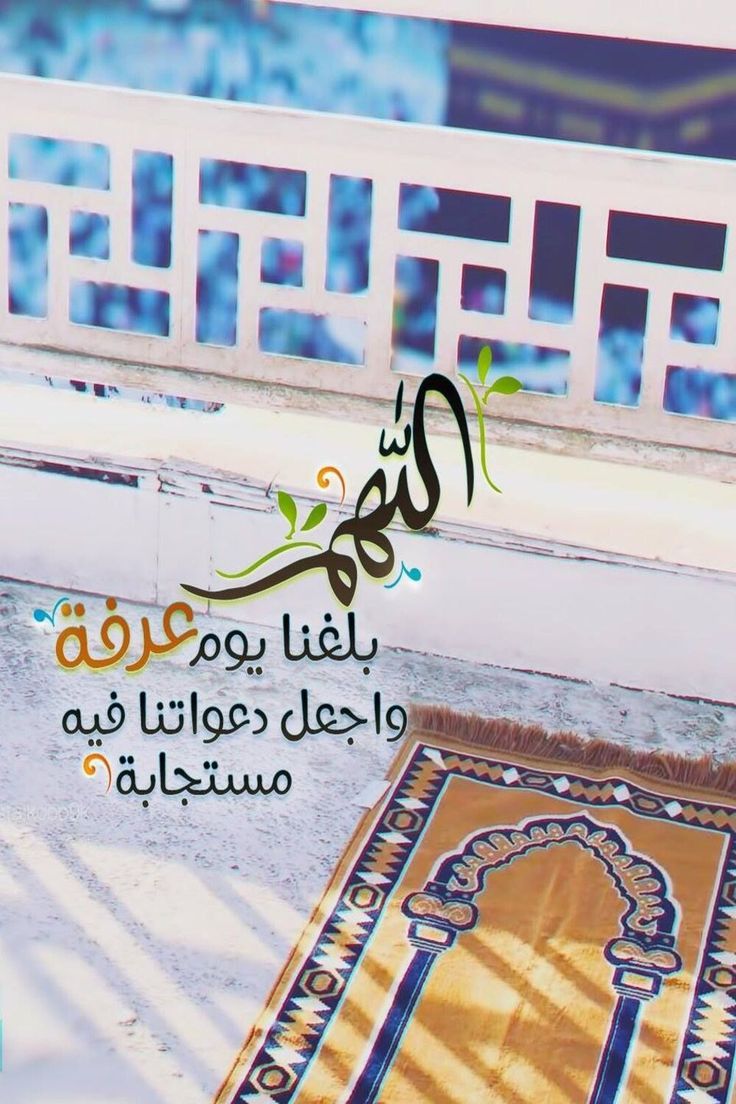 اللَّهم
بلغنا يوم عرفة
واجعل دعواتنا فيه
مستجابة